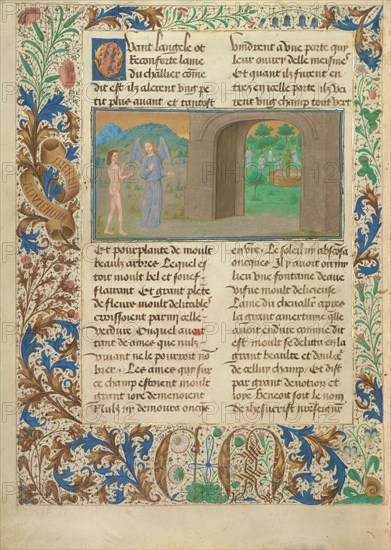 Quant langele ot
Reconforte lame
du chlier come
dit est ilz alerent ung pe
tit plus auant et tantost
vindrent a une porte qui
leur ouury delle meisme
Et quant ilz furent en
trez en celle porte ilz ve
rent ung champ tout vert
Et pourplante de moult
beaulz arbres Lequel es
toit moult bel et souef
flairant Et grant plete
de fleurs moult delitable
croissoient parmi celle
verdure Ouquel auoit
tant de ames que nulz
viuant ne le pourroit no
brer Les ames qui sur
ce champ estoient moult
grant ioye demenoient
Nulz ny demoura oncqs
en vie Le soleil ny absconsa
oncques Il y auoit ou mi
lieu une fontaine deaue
viue moult delicieuse
Lame du cheualier apres
la grant amertume qlle
auoit endure comme dit
est moult se delita en la
grant beaulte et doulce
de cellui champ Et dist
par grant deuotion et
ioye Benoit soit le nom
de ihesucrist nreseignr